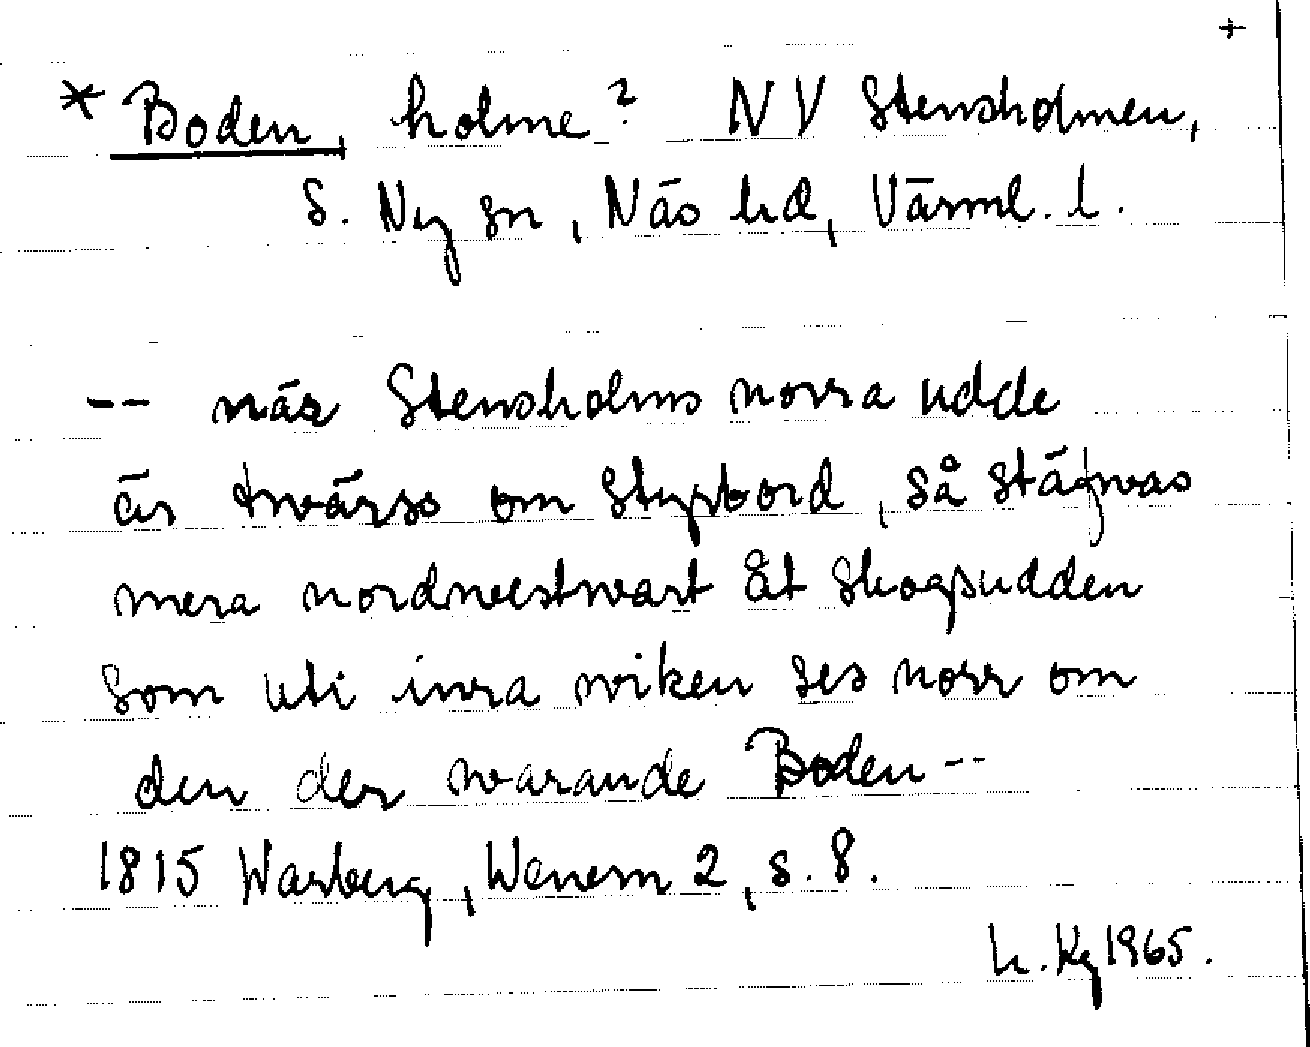 +
* Boden, holme? NV Stensholmen,
S. Ny sn, Näs hd, Värml. l.
-- när Stensholms norra udde
är twärss om Styrbord, så stäfwas
mera nordnestwart åt Skogsudden
som uti inra wiken ses norr om
den der warande Boden --
1815 Warberg, Wenern 2, s. 8.
h. Kg 1965.